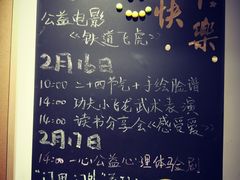 快乐
公益电影
《铁道飞虎》
2月16日
10:00 二十四节气+手绘脸谱
14:00 功夫小飞龙武术表演
14:00 读书分享会《感受爱》
2月17日
14:00 一心公益心理体验剧